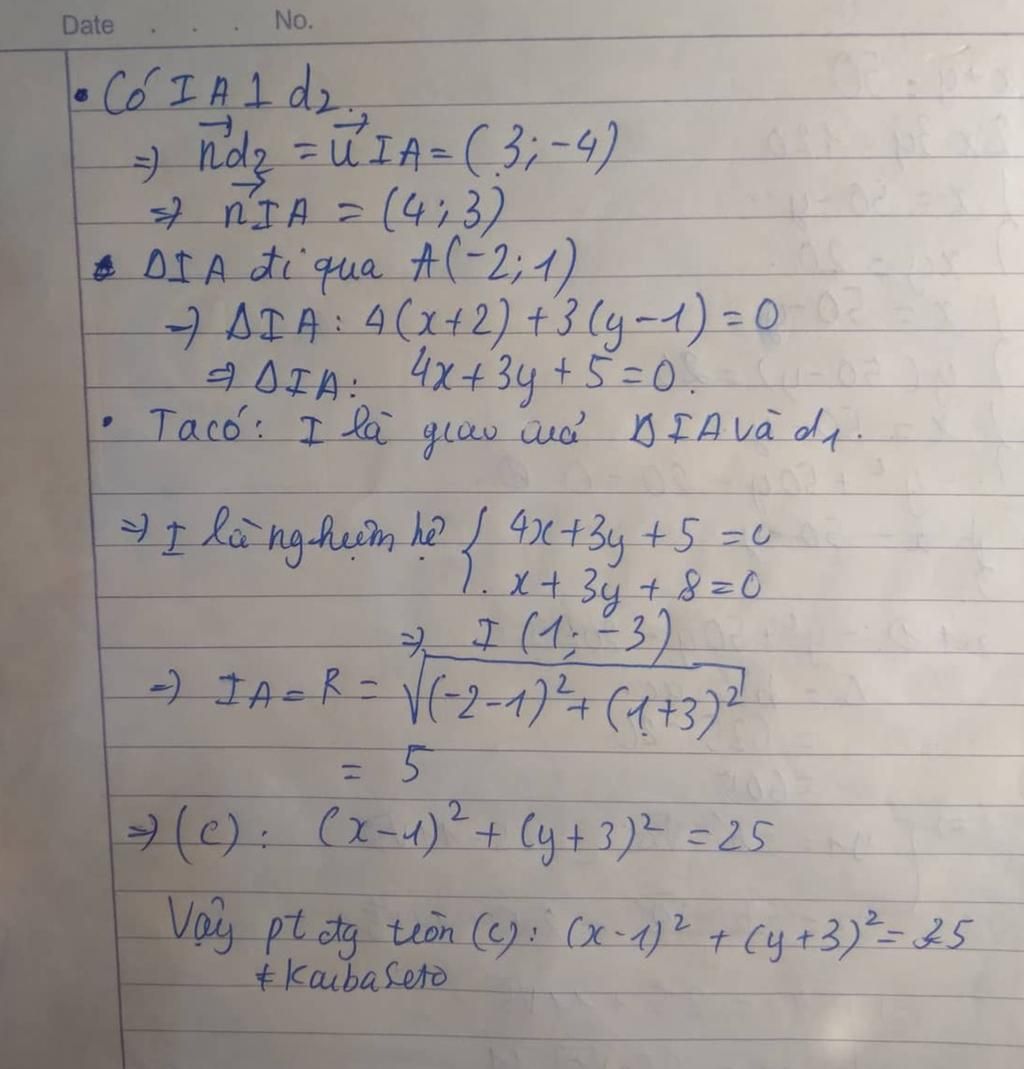 Date . . . No.
• Có IA ⊥ d₂.
=> n⃗d₂ = u⃗IA = (3; -4)
=> n⃗IA = (4; 3)
• ΔIA đi qua A(-2; 1)
=> ΔIA: 4(x+2) + 3(y-1) = 0
=> ΔIA: 4x + 3y + 5 = 0.
• Ta có: I là giao của ΔIA và d₁.
=> I là nghiệm hệ { 4x + 3y + 5 = 0
x + 3y + 8 = 0
=> I (1; -3)
=> IA = R = √((-2-1)² + (1+3)²)
= 5
=> (C): (x-1)² + (y+3)² = 25
Vậy pt đg tròn (C): (x-1)² + (y+3)² = 25
#KaibaSeto